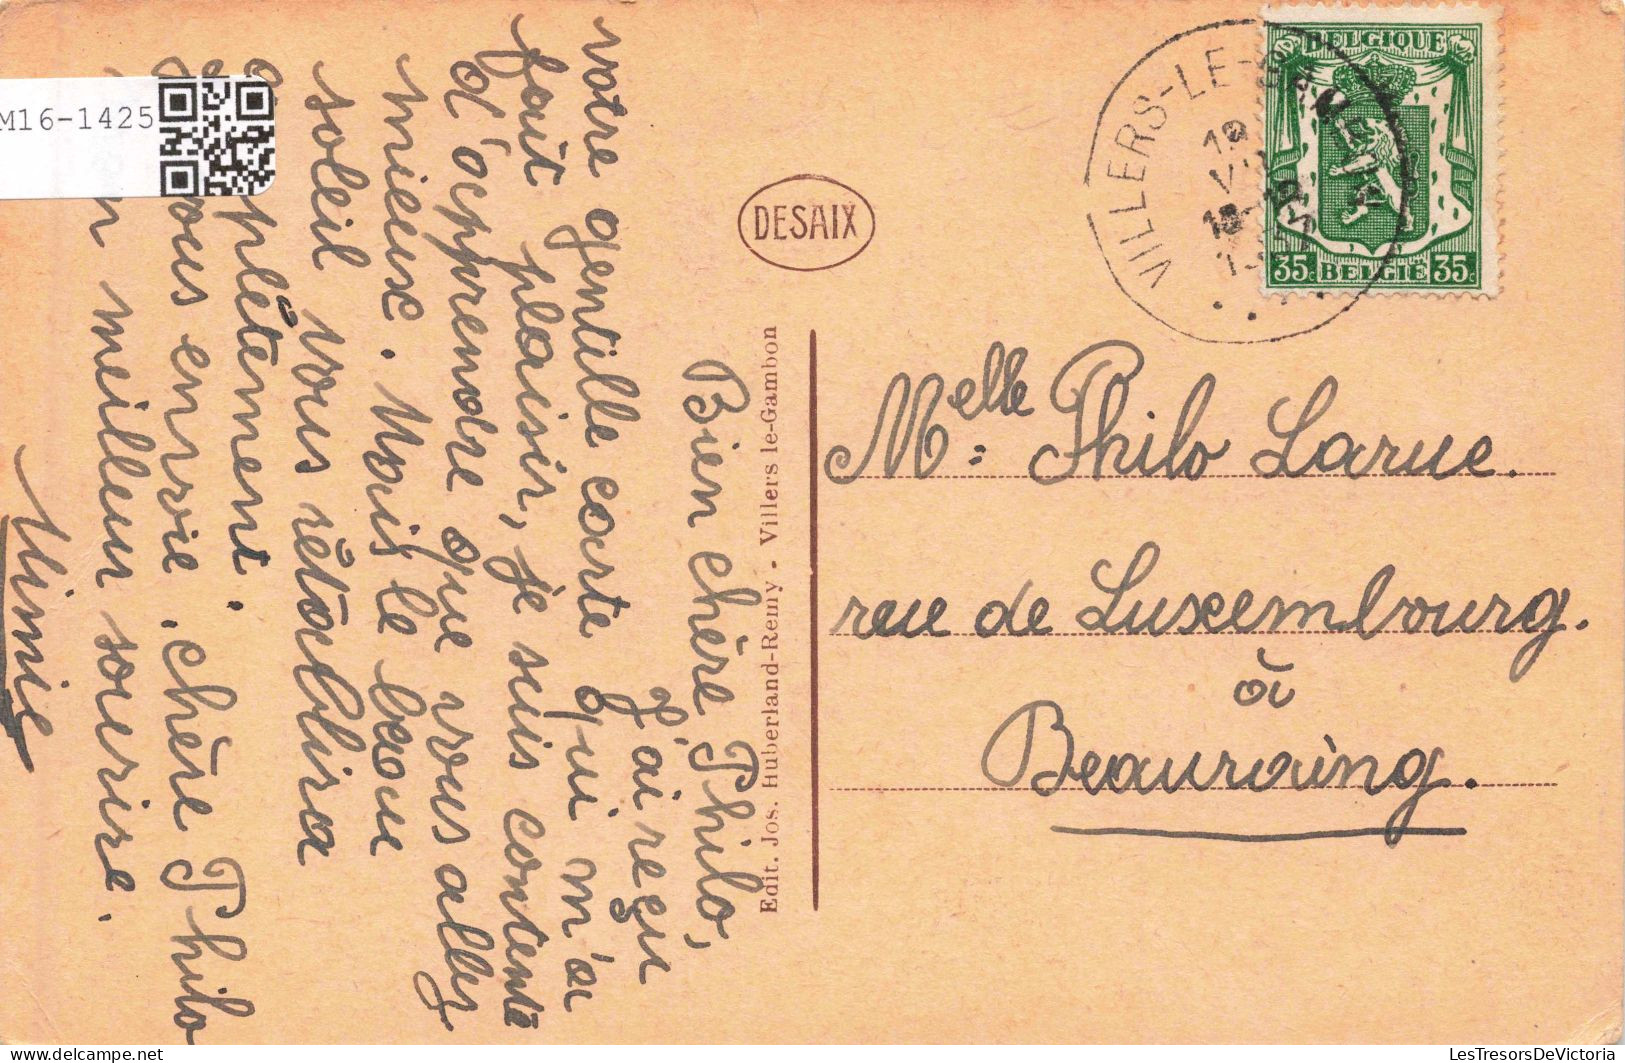 M16-1425
Bien chère Philo,
J'ai reçu
votre gentille carte qui m'a
fait plaisir, je suis contente
d'apprendre que vous allez
mieux. Mais le beau
soleil vous rétablira
complètement.
vous envoie, chère Philo
meilleur sourire.
Mimie
Edit. Jos. Huberland-Remy - Villers le-Gambon
DESAIX
VILLERS-LE-GAMBON
BELGIQUE
35c BELGIË 35c
Melle: Philo Larue.
rue de Luxembourg.
à
Beauraing.
LesTresorsDeVictoria